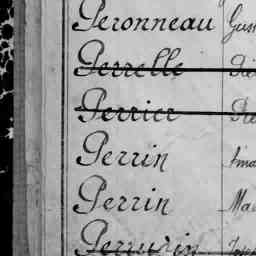 Peronneau Gus
Perrelle
Perrier
Perrin Ama
Perrin Ma
Perrurin Jose